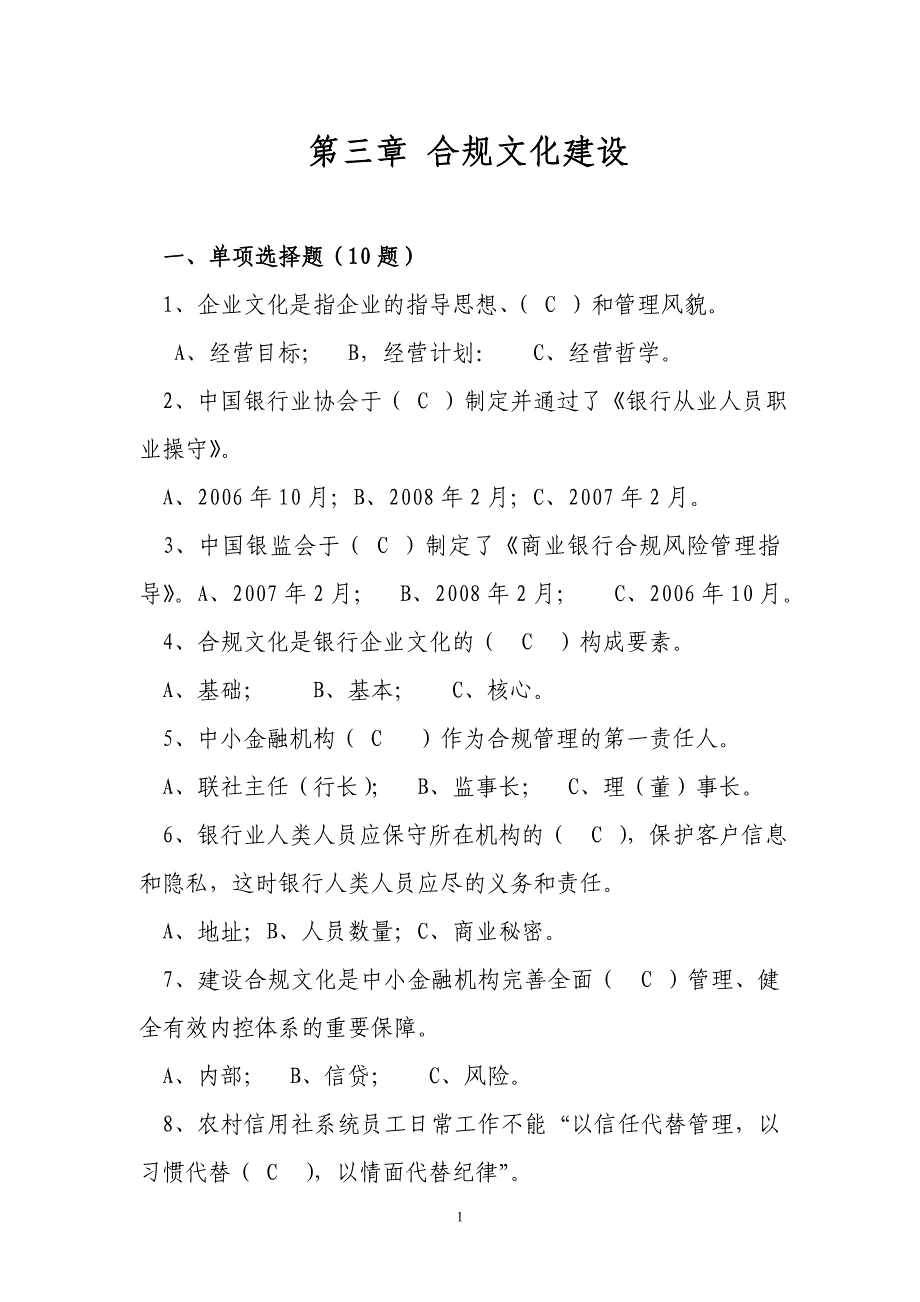 第三章 合规文化建设
一、单项选择题（10题）
1、企业文化是指企业的指导思想、（ C ）和管理风貌。
A、经营目标； B，经营计划： C、经营哲学。
2、中国银行业协会于（ C ）制定并通过了《银行从业人员职
业操守》。
A、2006年10月；B、2008年2月；C、2007年2月。
3、中国银监会于（ C ）制定了《商业银行合规风险管理指
导》。A、2007年2月； B、2008年2月； C、2006年10月。
4、合规文化是银行企业文化的（ C ）构成要素。
A、基础； B、基本； C、核心。
5、中小金融机构（ C ）作为合规管理的第一责任人。
A、联社主任（行长）； B、监事长； C、理（董）事长。
6、银行业人类人员应保守所在机构的（ C ），保护客户信息
和隐私，这时银行人类人员应尽的义务和责任。
A、地址；B、人员数量；C、商业秘密。
7、建设合规文化是中小金融机构完善全面（ C ）管理、健
全有效内控体系的重要保障。
A、内部； B、信贷； C、风险。
8、农村信用社系统员工日常工作不能“以信任代替管理，以
习惯代替（ C ），以情面代替纪律”。
1